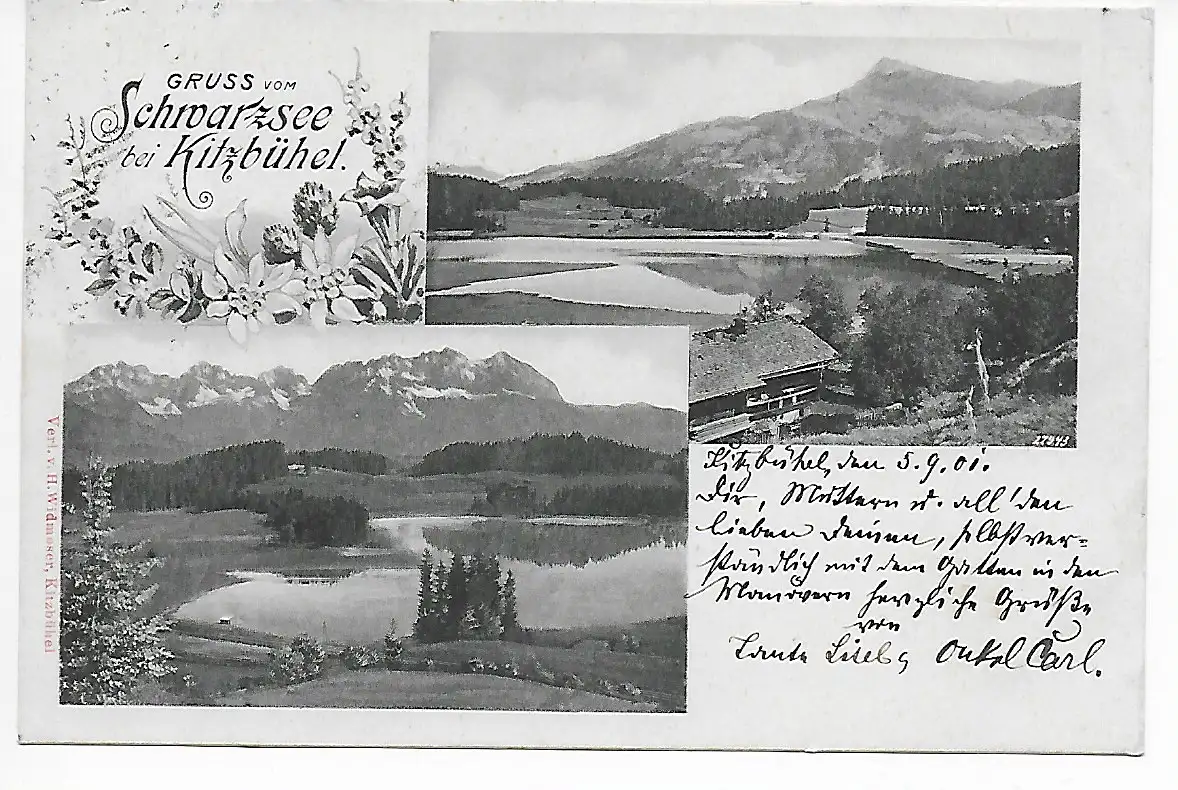 GRUSS VOM
Schwarzsee
bei Kitzbühel.
27343
Verl. v. H. Widmoser, Kitzbühel
Kitzbühel, den 5.9.01.
Dir, Muttern u. all' den
lieben Deinen, selbstver=
ständlich mit dem Gatten in den
Manövern herzliche Grüße
von
Tante Lisel Onkel Carl.